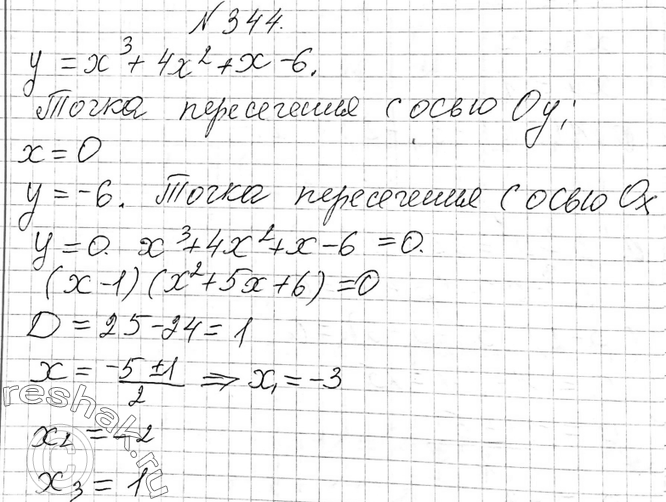 № 344.
y = x³ + 4x² + x - 6.
Точка пересечения с осью Oy;
x = 0
y = -6. Точка пересечения с осью Ox
y = 0. x³ + 4x² + x - 6 = 0.
(x - 1) (x² + 5x + 6) = 0
D = 25 - 24 = 1
x = (-5 ± 1)/2 ⇒ x₁ = -3
x₂ = -2
x₃ = 1
© reshak.ru